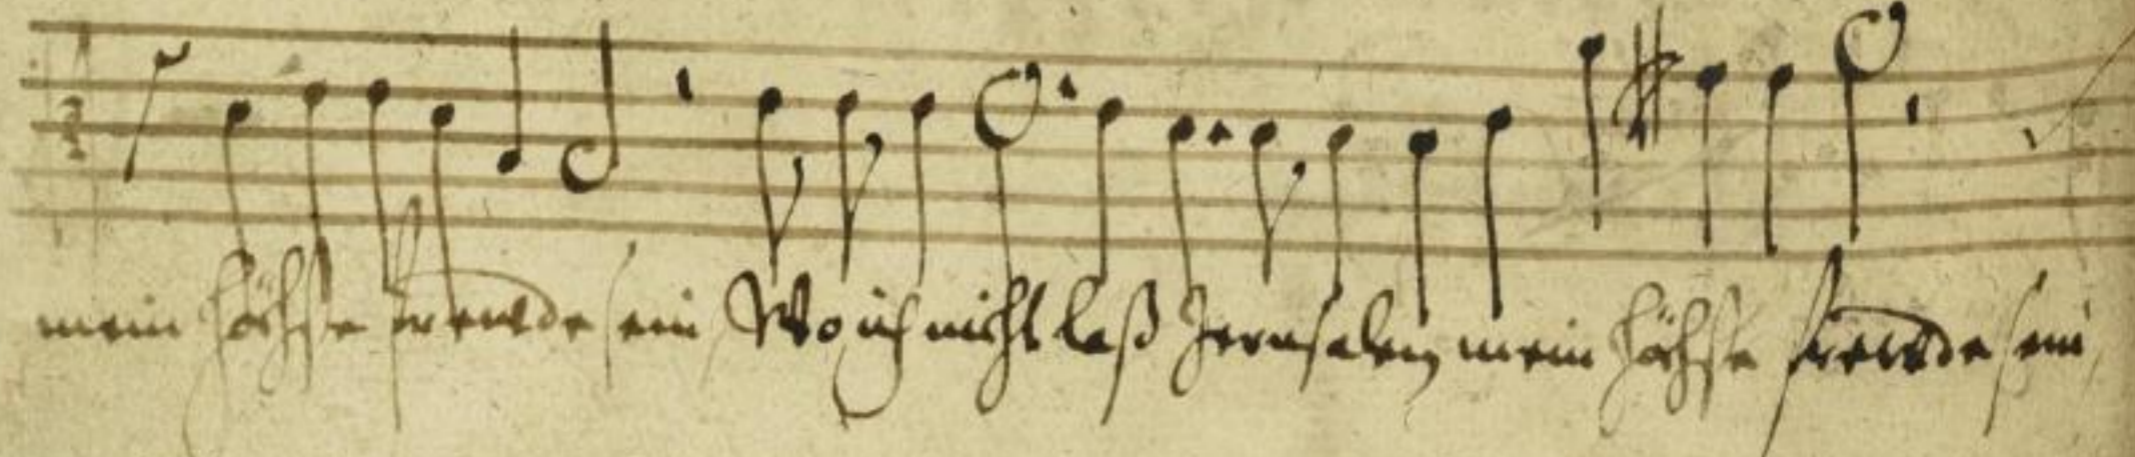 mein höchste frewde sein Wo ich nicht laß Jerusalem mein höchste frewde sein